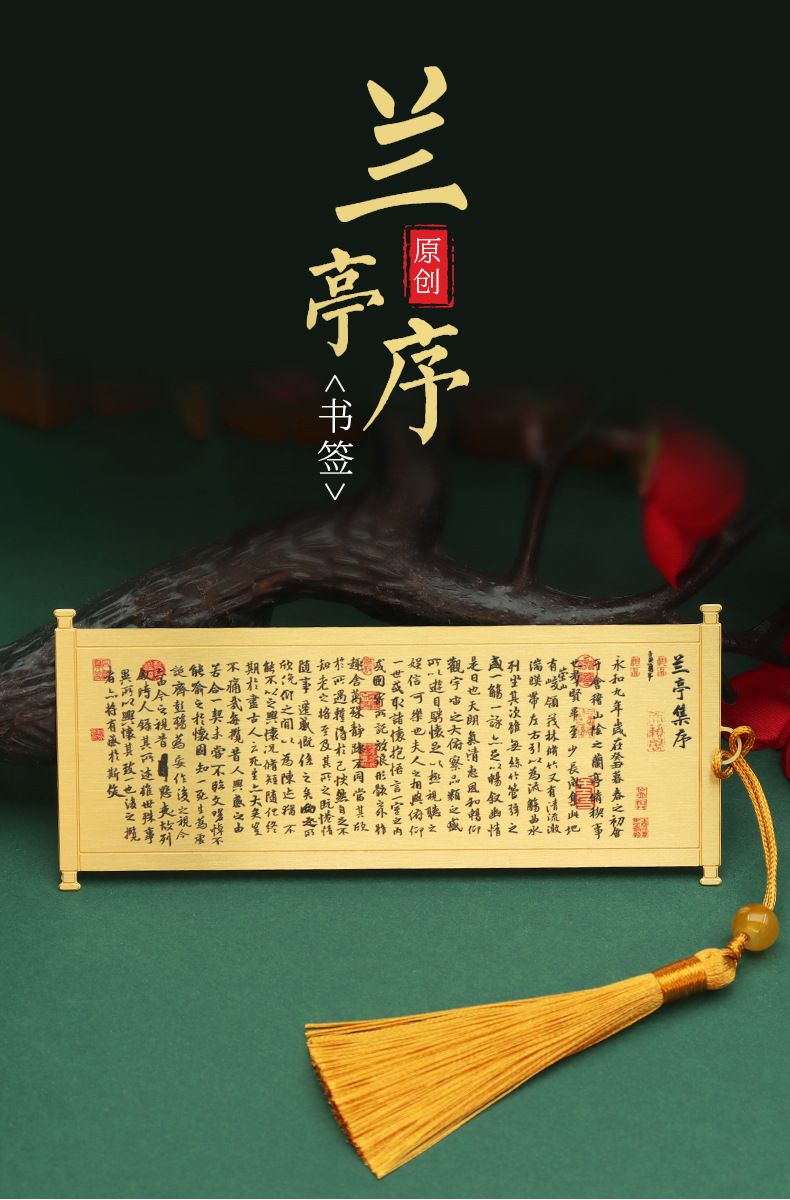 兰亭序
原创
<书签>
兰亭集序
永和九年歲在癸丑暮春之初會
于會稽山陰之蘭亭脩稧事
也羣賢畢至少長咸集此地
有崇山峻領茂林脩竹又有清流激
湍暎帶左右引以為流觴曲水
列坐其次雖無絲竹管弦之
盛一觴一詠亦足以暢敘幽情
是日也天朗氣清惠風和暢仰
觀宇宙之大俯察品類之盛
所以遊目騁懷足以極視聽之
娛信可樂也夫人之相與俯仰
一世或取諸懷抱悟言一室之內
或因寄所託放浪形骸之外雖
趣舍萬殊靜躁不同當其欣
於所遇蹔得於己快然自足不
知老之將至及其所之既惓情
隨事遷感慨係之矣向之所
欣俛仰之間以為陳迹猶不
能不以之興懷況脩短隨化終
期於盡古人云死生亦大矣豈
不痛哉每攬昔人興感之由
若合一契未嘗不臨文嗟悼不
能喻之於懷固知一死生為虛
誕齊彭殤為妄作後之視今
亦由今之視昔悲夫故列
敘時人錄其所述雖世殊事
異所以興懷其致一也後之攬
者亦將有感於斯文